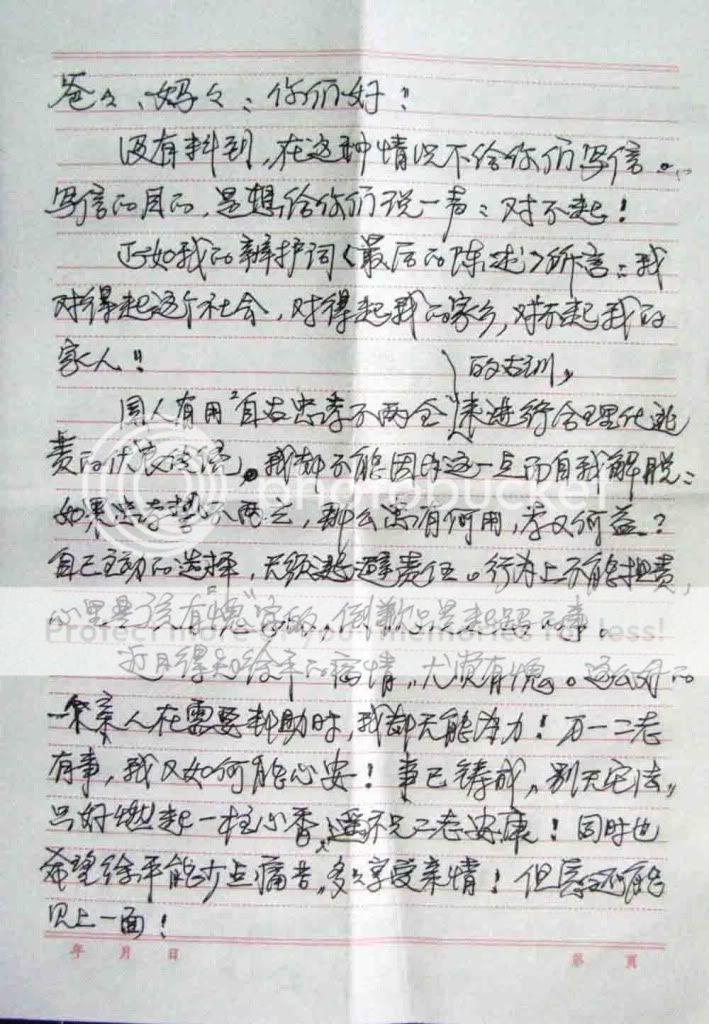 爸々、妈々：你们好！
没有料到，在这种情况下给你们写信。
写信的目的，是想给你们说一声：对不起！
正如我的辩护词《最后的陈述》所言：我
对得起这个社会，对得起我的家乡，对不起我的
家人！
的古训，
国人有用“自古忠孝不两全”来进行合理化逃
责的，我却不能因为这一点而自我解脱：
如果忠孝不两全，那么忠有何用，孝又何益？
自己主动的选择，无须逃避责任。行为上不能担责，
心里是该有“愧”字的，道歉只是
photobucket
Protect more of your memories for less!
近日得知徐平的病情，尤觉有愧。这么好的
一亲人在需要帮助时，我却无能为力！万一二老
有事，我又如何能心安！事已铸成，别无它法，
只好燃起一柱心香，遥祝二老安康！同时也
希望徐平能少点痛苦，多々享受亲情！但愿还能
见上一面！
年 月 日 第 页